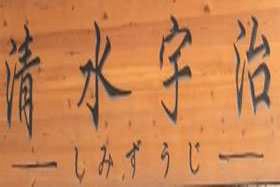 清水宇治
—しみずうじ—